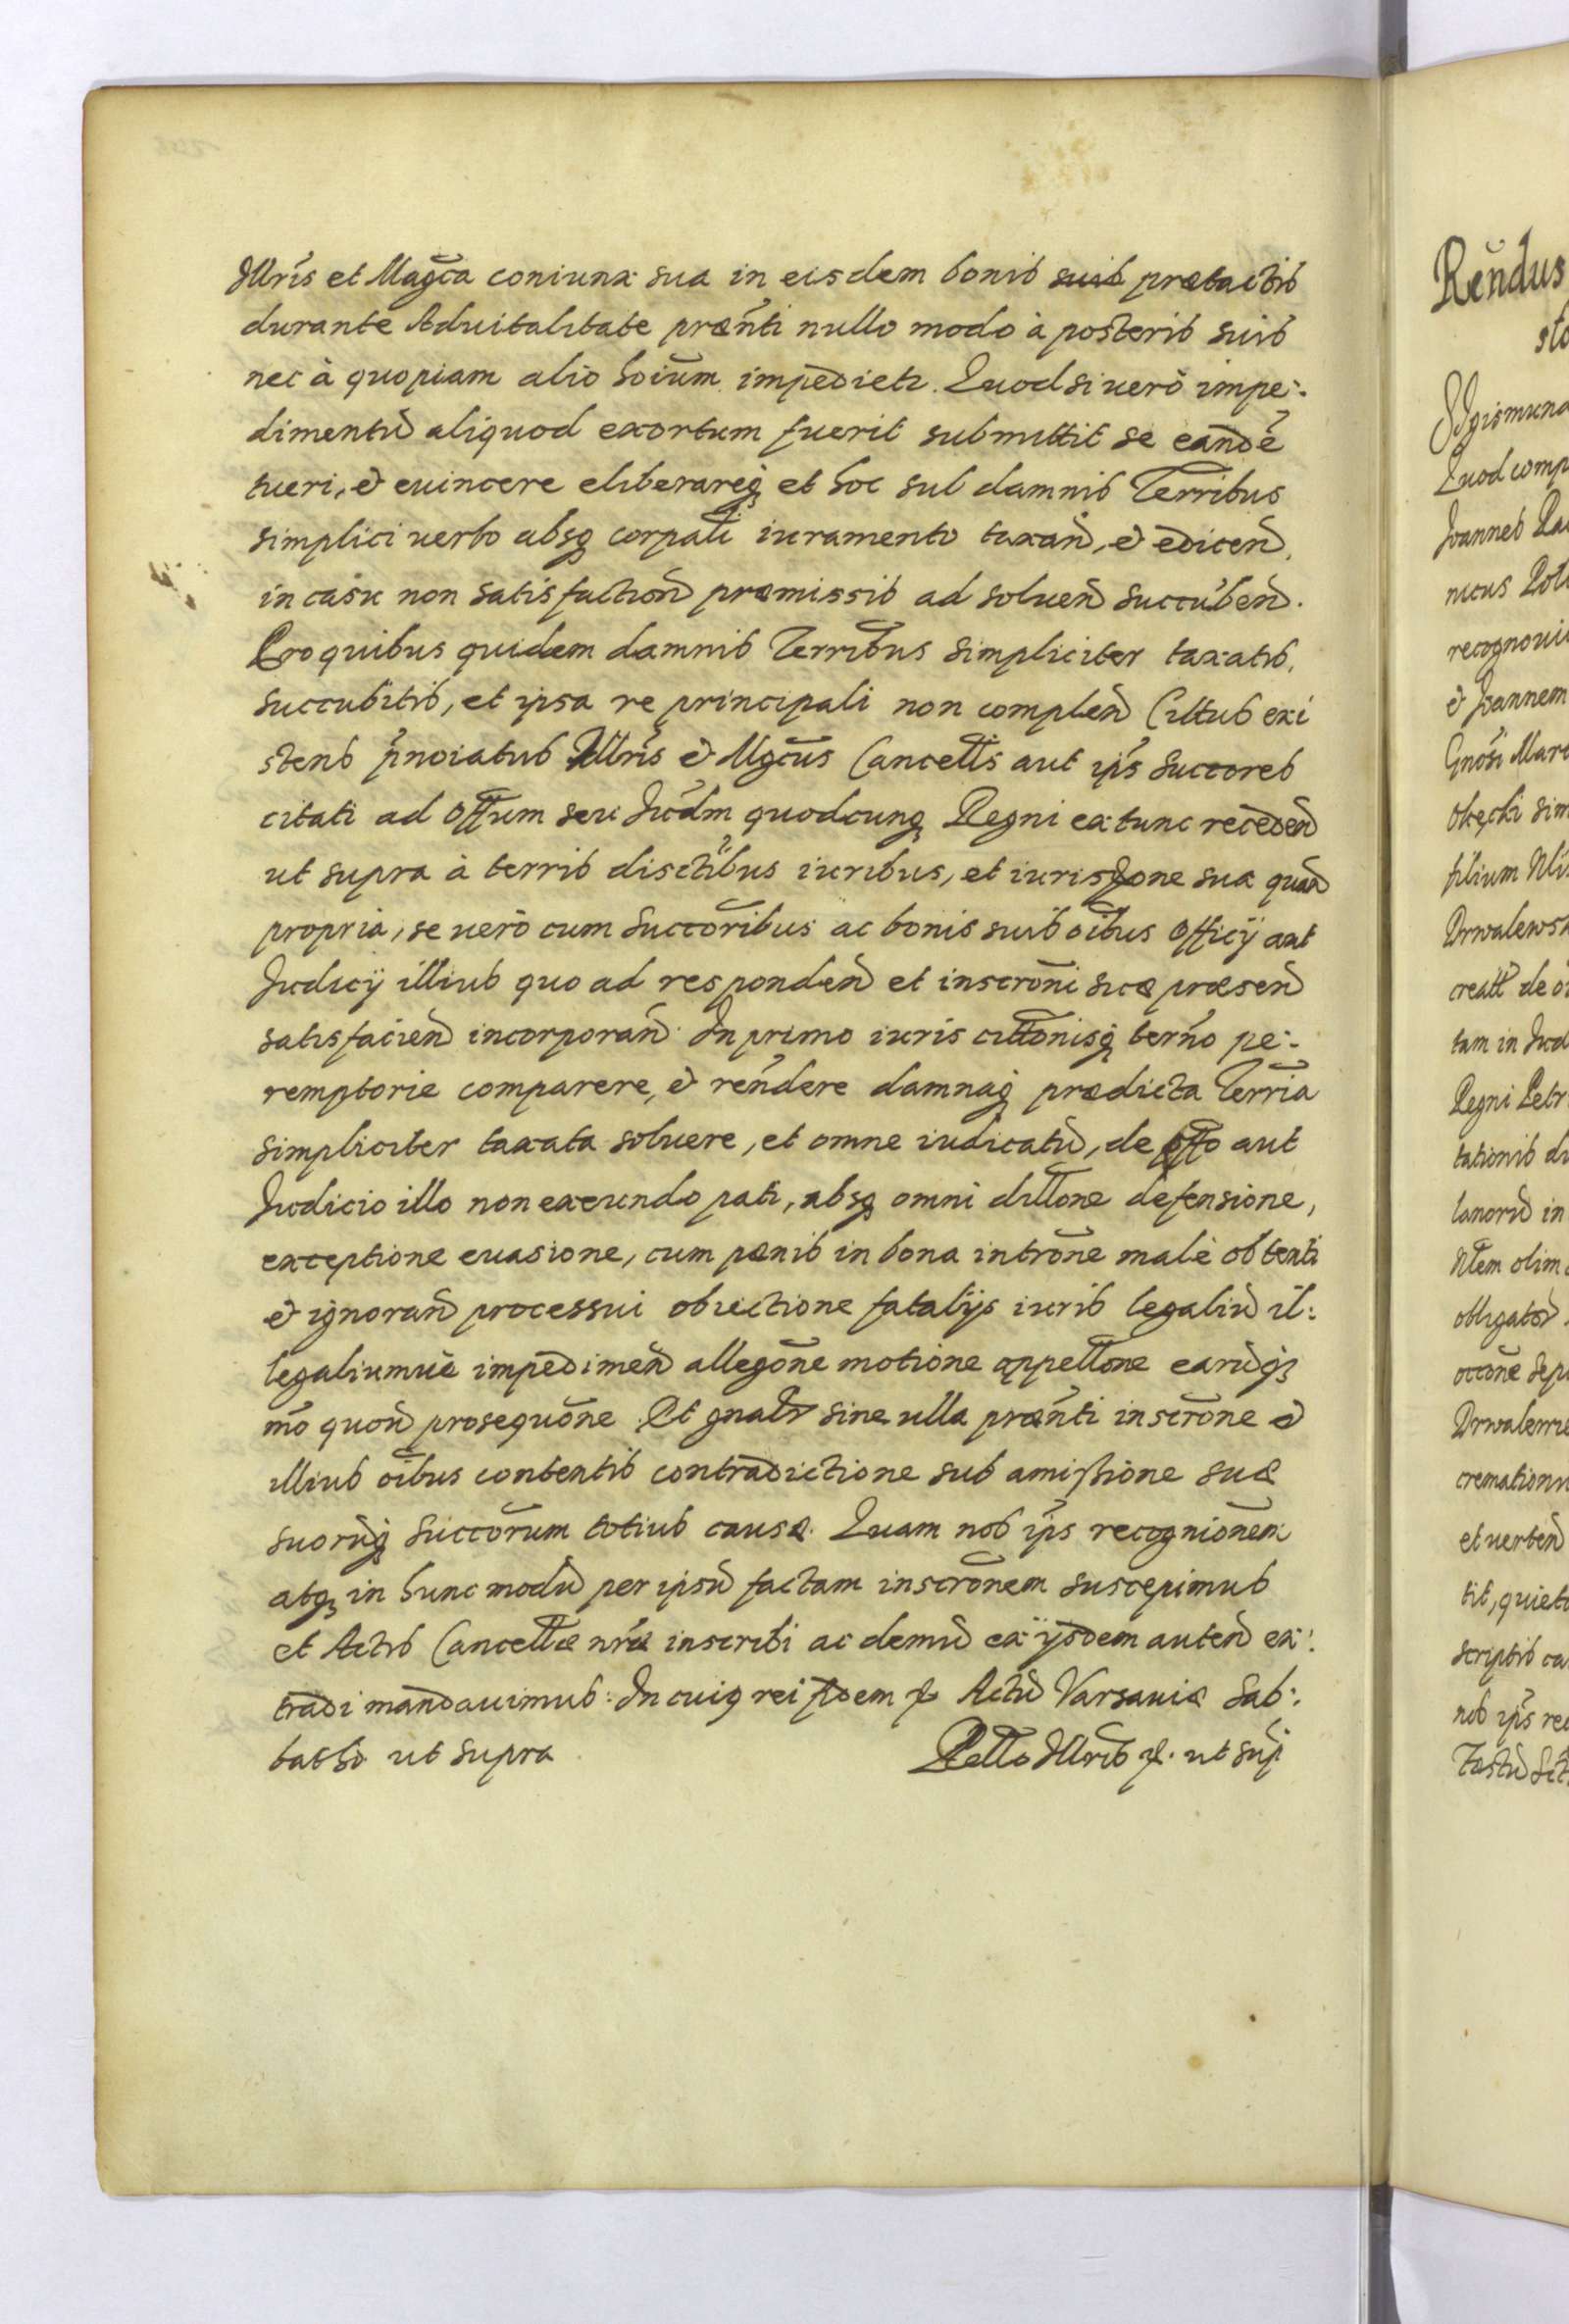 Illris et Magca coniunx sua in eisdem bonis suis prætactis
durante Aduitalitate prænti nullo modo à posteris suis
nec à quopiam alio hoium impediet. Quod si uerò impe:
dimentũ aliquod exortum fuerit submittit se eandẽ
tueri, & euincere eliberareq; et hoc sub damnis Terribus
simplici uerbo absq; corpali iuramento taxan, & edicen,
in casu non satisfaction præmissis ad soluen succuben.
Pro quibus quidem damnis Terribus simpliciter taxatis,
succubitis, et ipsa re principali non complen Cittus exi
stens pnoiatus Illris & Mgcus Cancells aut ips Succores
citati ad Offium seu Judm quodcunq; Regni ex tunc receden
ut supra à terris disctibus iuribus, et iurisdone sua quauis
propria, se uerò cum Succoribus ac bonis suis oibus Officij aut
Judicij illius quo ad responden et inscroni suæ præsen
satisfacien incorporan. In primo iuris cittonisq; terno pe:
remptorie comparere, & rendere damnaq; prædicta Terria
simpliciter taxata soluere, et omne iudicatũ, de offo aut
Judicio illo non exeundo pati, absq; omni dillone defensione,
exceptione euasione, cum pænis in bona introne malè obtenti
& ignoran processui obiectione fatalijs iuris legaliũ il:
legaliumuè impedimen allegone motione appellone earũq;
mo quon prosequone. Et gnalr sine ulla prænti inscrone &
illius oibus contentis contradictione sub amissione suæ
suorũq; Succorum totius causæ. Quam nos ips recognionem
atq; in hunc modũ per ipsũ factam inscronem suscepimus
et Actis Cancellæ nræ inscribi ac demũ ex ijsdem auten ex:
tradi mandauimus. In cuiq rei fidem & Actũ Varsauiæ Sab:
batho ut supra Rello Illris &. ut sup
Rendus
sto
Sigismund
Quod comp
Joannes
recognoui
& Joannem
Gnosi Mar
Okęcki sim
filium
Drwalewsk
creatt de
tam in Jud
Regni Petr
tationis
lanorũ in
olim
obligator
Drwalew
cremationi
et uerten
tit, quiet
scriptis ca
nos ips rec